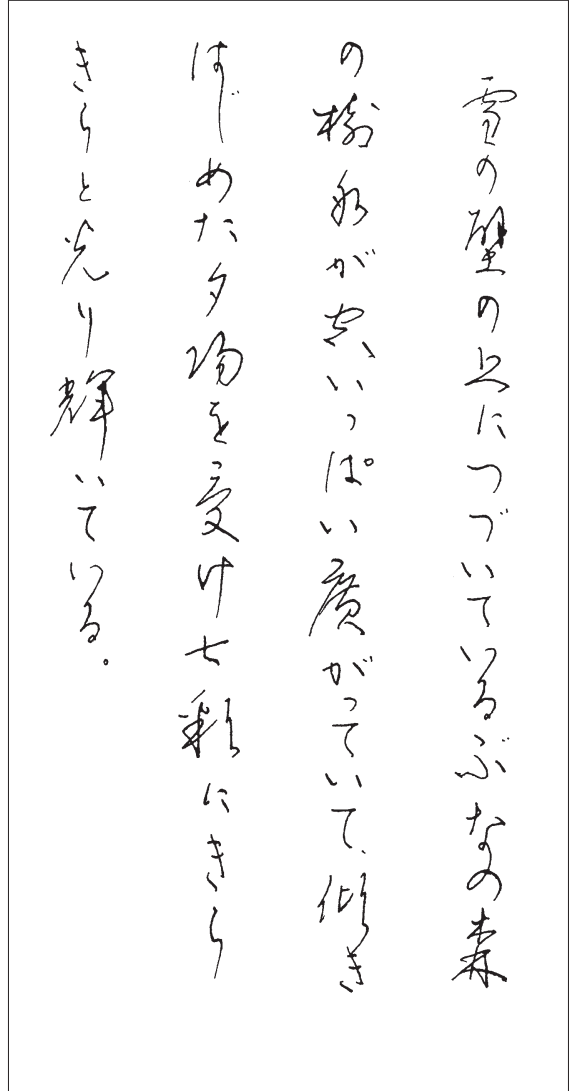 雪の壁の上につづいているぶなの森
の樹氷が空いっぱい廣がっていて、傾き
はじめた夕陽を受け七彩にきら
きらと光り輝いている。